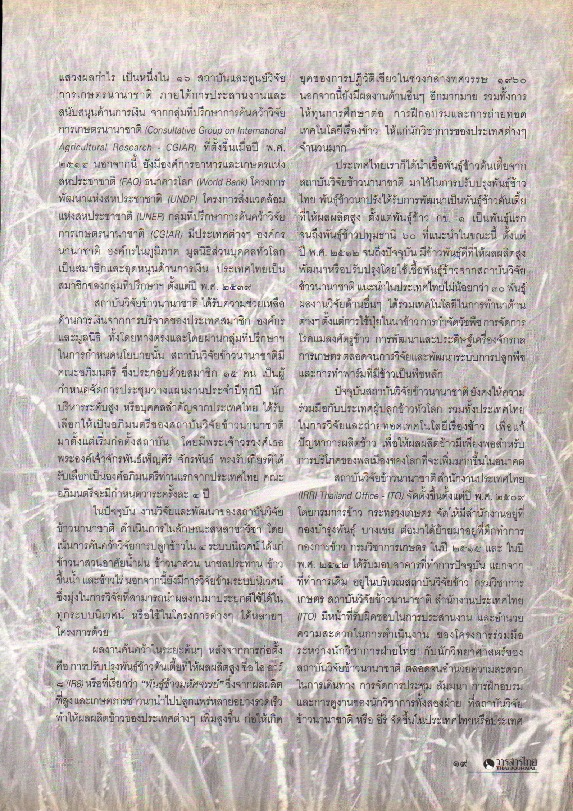 แสวงผลกำไร เป็นหนึ่งใน ๑๖ สถาบันและศูนย์วิจัย
การเกษตรนานาชาติ ภายใต้การประสานงานและ
สนับสนุนด้านการเงิน จากกลุ่มที่ปรึกษาการค้นคว้าวิจัย
การเกษตรนานาชาติ (Consultative Group on International
Agricultural Research - CGIAR) ที่ตั้งขึ้นเมื่อปี พ.ศ.
๒๕๑๔ นอกจากนี้ ยังมีองค์การอาหารและเกษตรแห่ง
สหประชาชาติ (FAO) ธนาคารโลก (World Bank) โครงการ
พัฒนาแห่งสหประชาชาติ (UNDP) โครงการสิ่งแวดล้อม
แห่งสหประชาชาติ (UNEP) กลุ่มที่ปรึกษาการค้นคว้าวิจัย
การเกษตรนานาชาติ (CGIAR) มีประเทศต่างๆ องค์กร
นานาชาติ องค์กรในภูมิภาค มูลนิธิส่วนบุคคลทั่วโลก
เป็นสมาชิกและอุดหนุนด้านการเงิน ประเทศไทยเป็น
สมาชิกของกลุ่มที่ปรึกษาฯ ตั้งแต่ปี พ.ศ. ๒๕๓๙
สถาบันวิจัยข้าวนานาชาติ ได้รับความช่วยเหลือ
ด้านการเงินจากการบริจาคของประเทศสมาชิก องค์กร
และมูลนิธิ ทั้งโดยทางตรงและโดยผ่านกลุ่มที่ปรึกษาฯ
ในการกำหนดนโยบายนั้น สถาบันวิจัยข้าวนานาชาติมี
คณะอภิมนตรี ซึ่งประกอบด้วยสมาชิก ๑๕ คน เป็นผู้
กำหนดจัดการประชุมวางแผนงานประจำปีทุกปี นัก
บริหารระดับสูง หรือบุคคลสำคัญจากประเทศไทย ได้รับ
เลือกให้เป็นอภิมนตรีของสถาบันวิจัยข้าวนานาชาติ
มาตั้งแต่เริ่มก่อตั้งสถาบัน โดยมีพระเจ้าวรวงศ์เธอ
พระองค์เจ้าจักรพันธ์เพ็ญศิริ จักรพันธ์ ทรงรับเกียรติได้
รับเลือกเป็นองค์อภิมนตรีท่านแรกจากประเทศไทย คณะ
อภิมนตรีจะมีกำหนดวาระครั้งละ ๔ ปี
ในปัจจุบัน งานวิจัยและพัฒนาของสถาบันวิจัย
ข้าวนานาชาติ ดำเนินการในลักษณะสหสาขาวิชา โดย
เน้นการค้นคว้าวิจัยการปลูกข้าวใน ๔ ระบบนิเวศน์ ได้แก่
ข้าวนาสวนอาศัยน้ำฝน ข้าวนาสวน นาชลประทาน ข้าว
ขึ้นน้ำ และข้าวไร่ นอกจากนี้ยังมีการวิจัยข้ามระบบนิเวศน์
ซึ่งมุ่งในการวิจัยที่สามารถนำผลงานมาประยุกต์ใช้ได้ใน
ทุกระบบนิเวศน์ หรือใช้ในโครงการต่างๆ ได้หลายๆ
โครงการด้วย
ผลงานค้นคว้าในระยะต้นๆ หลังจากการก่อตั้ง
คือ การปรับปรุงพันธุ์ข้าวต้นเตี้ยที่ให้ผลผลิตสูง ชื่อ ไอ อาร์
๘ (IR8) หรือที่เรียกว่า "พันธุ์ข้าวมหัศจรรย์" ซึ่งจากผลผลิต
ที่สูงและเกษตรกรชาวนานำไปปลูกแพร่หลายอย่างรวดเร็ว
ทำให้ผลผลิตข้าวของประเทศต่างๆ เพิ่มสูงขึ้น ก่อให้เกิด
ยุคของการปฏิวัติเขียวในช่วงกลางทศวรรษ ๑๙๖๐
นอกจากนี้ยังมีผลงานด้านอื่นๆ อีกมากมาย รวมทั้งการ
ให้ทุนการศึกษาต่อ การฝึกอบรมและการถ่ายทอด
เทคโนโลยีเรื่องข้าว ให้แก่นักวิชาการของประเทศต่างๆ
จำนวนมาก
ประเทศไทยเราก็ได้นำเชื้อพันธุ์ข้าวต้นเตี้ยจาก
สถาบันวิจัยข้าวนานาชาติ มาใช้ในการปรับปรุงพันธุ์ข้าว
ไทย พันธุ์ข้าวนาปรังได้รับการพัฒนาเป็นพันธุ์ข้าวต้นเตี้ย
ที่ให้ผลผลิตสูง ตั้งแต่พันธุ์ข้าว กข. ๑ เป็นพันธุ์แรก
จนถึงพันธุ์ข้าวปทุมธานี ๖๐ ที่แนะนำในขณะนี้ ตั้งแต่
ปี พ.ศ. ๒๕๑๒ จนถึงปัจจุบัน มีข้าวพันธุ์ดีที่ให้ผลผลิตสูง
พัฒนาหรือปรับปรุงโดยใช้เชื้อพันธุ์ข้าวจากสถาบันวิจัย
ข้าวนานาชาติ แนะนำในประเทศไทยไม่น้อยกว่า ๓๐ พันธุ์
ผลงานวิจัยด้านอื่นๆ ได้รวมเทคโนโลยีในการทำนาด้าน
ต่างๆ ตั้งแต่การใช้ปุ๋ยในนาข้าว การกำจัดวัชพืช การจัดการ
โรคแมลงศัตรูข้าว การพัฒนาและประดิษฐ์เครื่องจักรกล
การเกษตร ตลอดจนการวิจัยและพัฒนาระบบการปลูกพืช
และการทำฟาร์มที่มีข้าวเป็นพืชหลัก
ปัจจุบันสถาบันวิจัยข้าวนานาชาติ ยังคงให้ความ
ร่วมมือกับประเทศผู้ปลูกข้าวทั่วโลก รวมทั้งประเทศไทย
ในการวิจัยและถ่ายทอดเทคโนโลยีเรื่องข้าว เพื่อแก้
ปัญหาการผลิตข้าว เพื่อให้ผลผลิตข้าวมีเพียงพอสำหรับ
การบริโภคของพลเมืองของโลกที่จะเพิ่มมากขึ้นในอนาคต
สถาบันวิจัยข้าวนานาชาติ สำนักงานประเทศไทย
(IRRI Thailand Office - ITO) จัดตั้งขึ้นตั้งแต่ปี พ.ศ. ๒๕๐๙
โดยกรมการข้าว กระทรวงเกษตร จัดให้มีสำนักงานอยู่ที่
กองบำรุงพันธุ์ บางเขน ต่อมาได้ย้ายมาอยู่ที่ตึกทำการ
กองการข้าว กรมวิชาการเกษตร ในปี ๒๕๑๕ และ ในปี
พ.ศ. ๒๕๔๒ ได้รับมอบอาคารที่ทำการปัจจุบัน แยกจาก
ที่ทำการเดิม อยู่ในบริเวณสถาบันวิจัยข้าว กรมวิชาการ
เกษตร สถาบันวิจัยข้าวนานาชาติ สำนักงานประเทศไทย
(ITO) มีหน้าที่รับผิดชอบในการประสานงาน และอำนวย
ความสะดวกในการดำเนินงาน ของโครงการร่วมมือ
ระหว่างนักวิชาการฝ่ายไทย กับนักวิทยาศาสตร์ของ
สถาบันวิจัยข้าวนานาชาติ ตลอดจนอำนวยความสะดวก
ในการเดินทาง การจัดการประชุม สัมมนา การฝึกอบรม
และการดูงานของนักวิชาการทั้งสองฝ่าย ที่สถาบันวิจัย
ข้าวนานาชาติ หรือ อีรี่ จัดขึ้นในประเทศไทยหรือประเทศ
๑๙ วารสารไทย